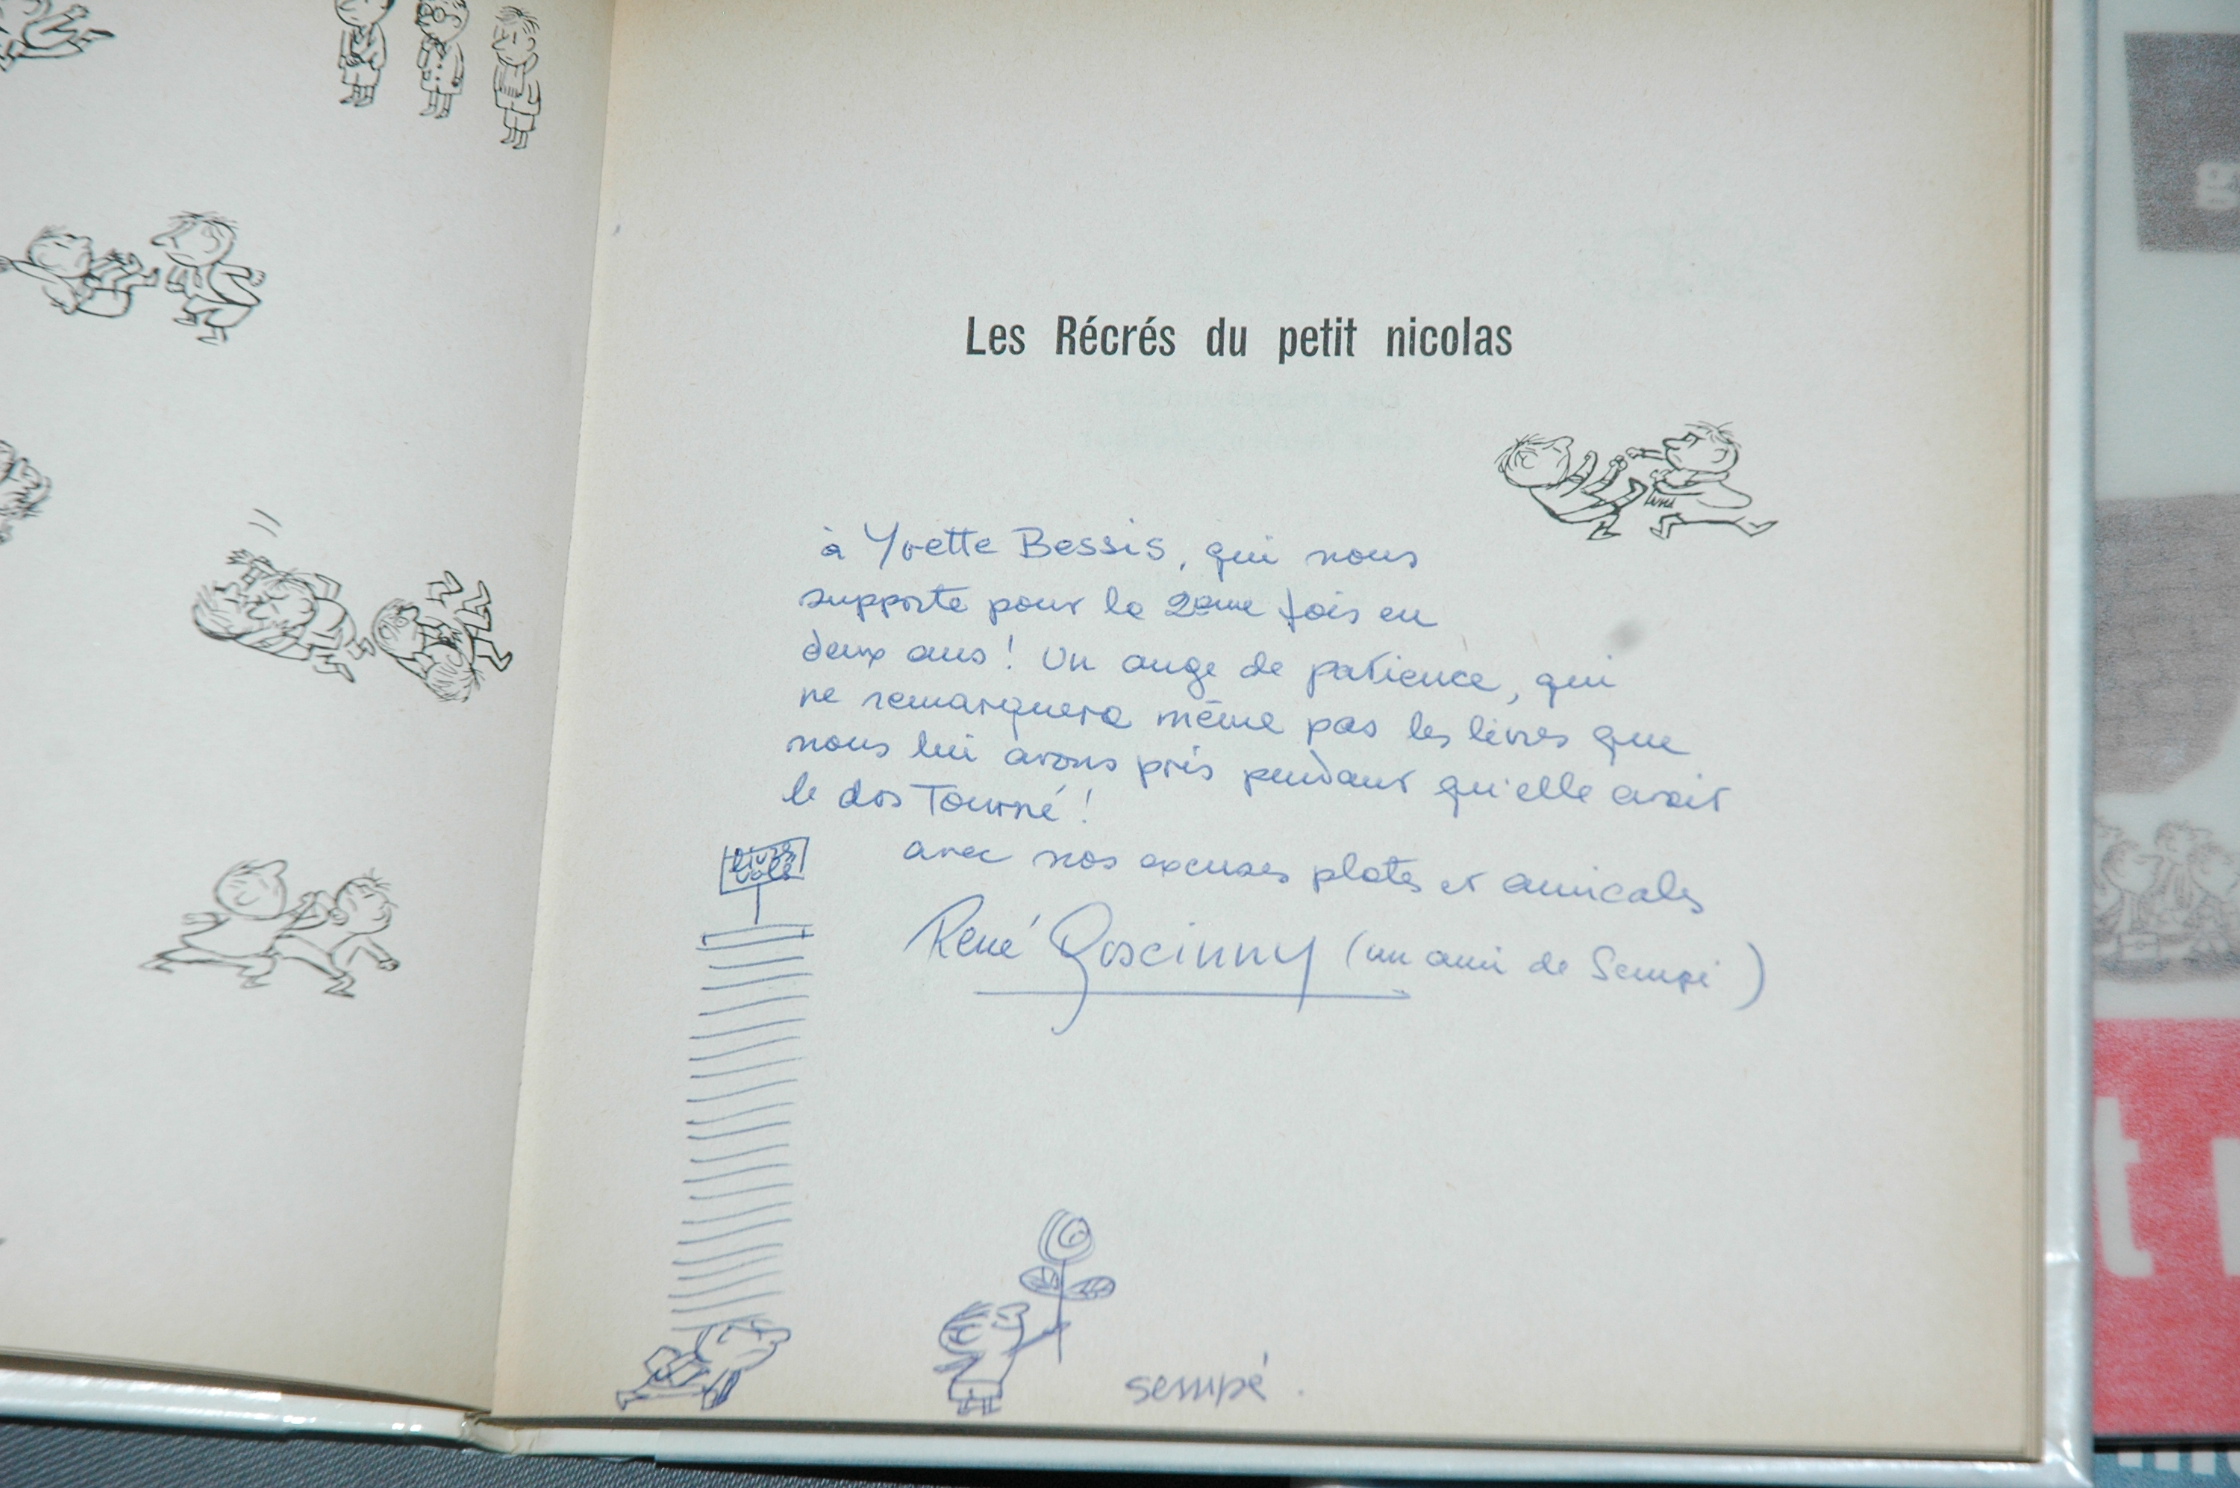 Les Récrés du petit nicolas
à Yvette Bessis, qui nous
supporte pour la 2eme fois en
deux ans ! Un ange de patience, qui
ne remarquera même pas les livres que
nous lui avons pris pendant qu'elle avait
le dos Tourné !
avec nos excuses plates et amicales
René Goscinny (un ami de Sempé)
sempé.